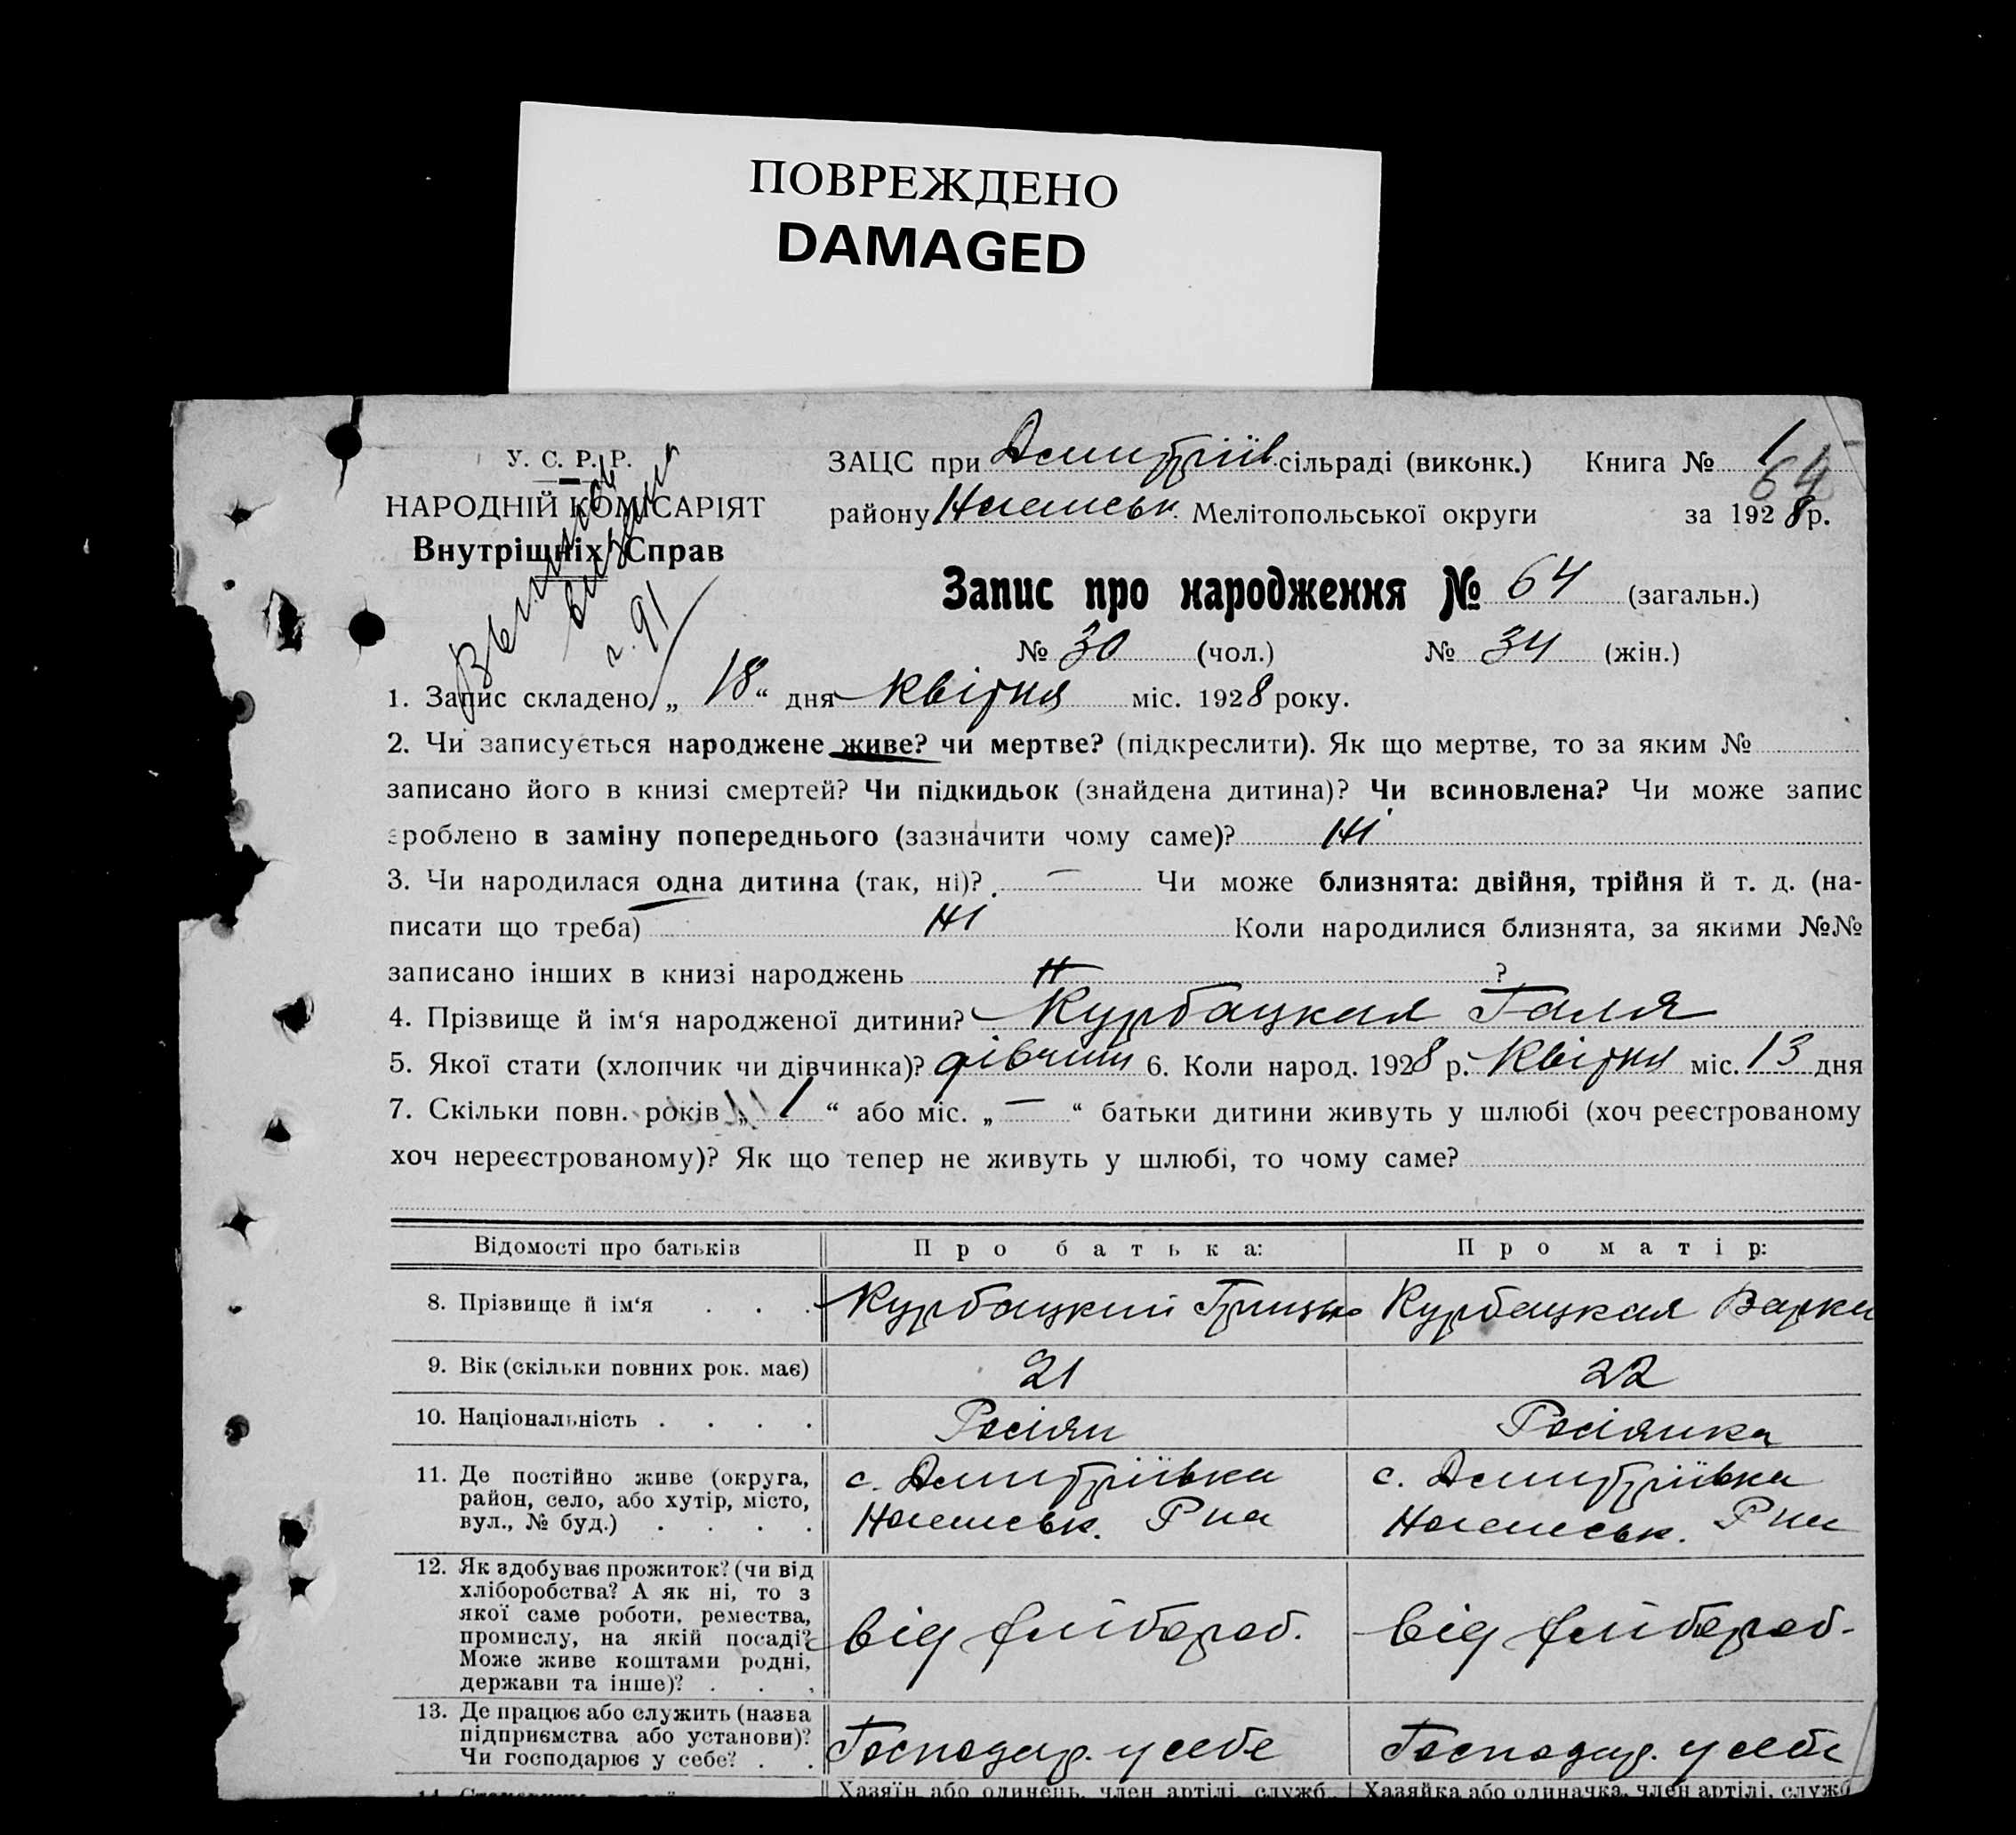 ПОВРЕЖДЕНО
DAMAGED
У. С. Р. Р.
НАРОДНІЙ КОМІСАРІЯТ
Внутрішніх Справ
г. 91
ЗАЦС при Дмитріїв сільраді (виконк.) Книга № 1
64
району Мелітопольської округи за 1928 р.
Запис про народження № 64 (загальн.)
№ 30 (чол.) № 34 (жін.)
1. Запис складено „ 18 “ дня квітня міс. 1928 року.
2. Чи записується народжене живе? чи мертве? (підкреслити). Як що мертве, то за яким №
записано його в книзі смертей? Чи підкидьок (знайдена дитина)? Чи всиновлена? Чи може запис
зроблено в заміну попереднього (зазначити чому саме)? Ні
3. Чи народилася одна дитина (так, ні)? — Чи може близнята: двійня, трійня й т. д. (на-
писати що треба) Ні Коли народилися близнята, за якими №№
записано інших в книзі народжень ?
4. Прізвище й ім‘я народженої дитини? Курбацкая Галя
5. Якої стати (хлопчик чи дівчинка)? дівчин 6. Коли народ. 1928 р. Квітня міс. 13 дня
7. Скільки повн. років „ 1 “ або міс. „ — “ батьки дитини живуть у шлюбі (хоч реєстрованому
хоч нереєстрованому)? Як що тепер не живуть у шлюбі, то чому саме?
Відомості про батьків Про батька: Про матір:
8. Прізвище й ім‘я . . . Курбацкий Грицько Курбацкая Варка
9. Вік (скільки повних рок. має) 21 22
10. Національність . . . . Росіян Росіянка
11. Де постійно живе (округа,
район, село, або хутір, місто,
вул., № буд.) . . . .
с. Дмитріївка
Р на
с. Дмитріївка
Р на
12. Як здобуває прожиток? (чи від
хліборобства? А як ні, то з
якої саме роботи, ремества,
промислу, на якій посаді?
Може живе коштами родні,
держави та інше)? . . .
від хлібороб.
від хлібороб.
13. Де працює або служить (назва
підприємства або установи)?
Чи господарює у себе? . .
Господар. у себе
Господар. у себе
Хазяїн або одинець, член артілі, служб. Хазяйка або одиначка, член артілі, служб